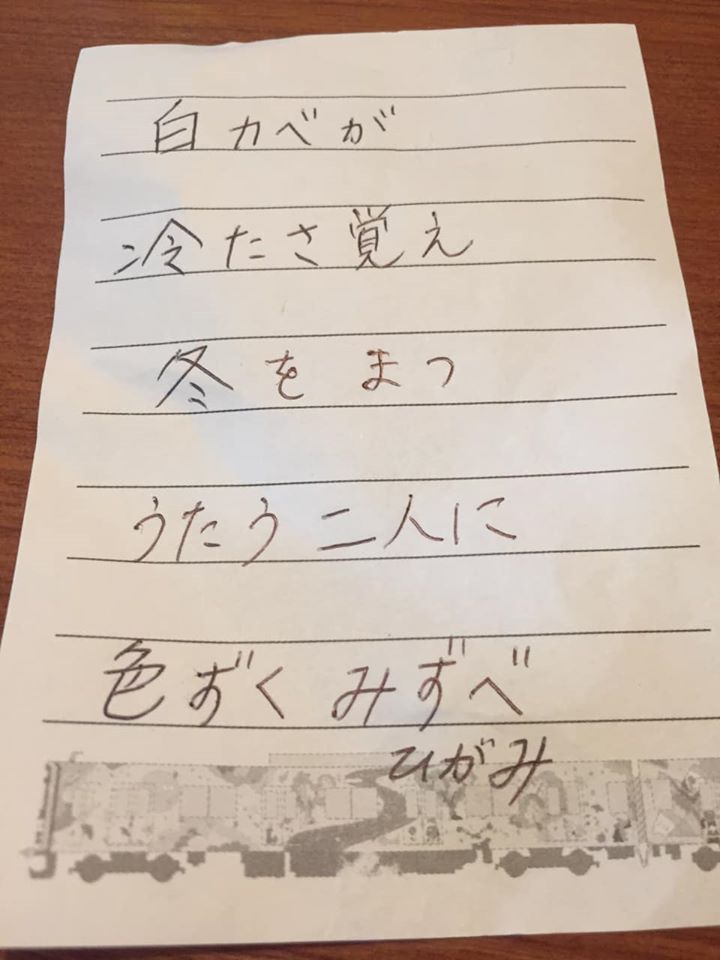 白カベが
冷たさ覚え
冬をまつ
うたう二人に
色ずくみずべ
ひがみ